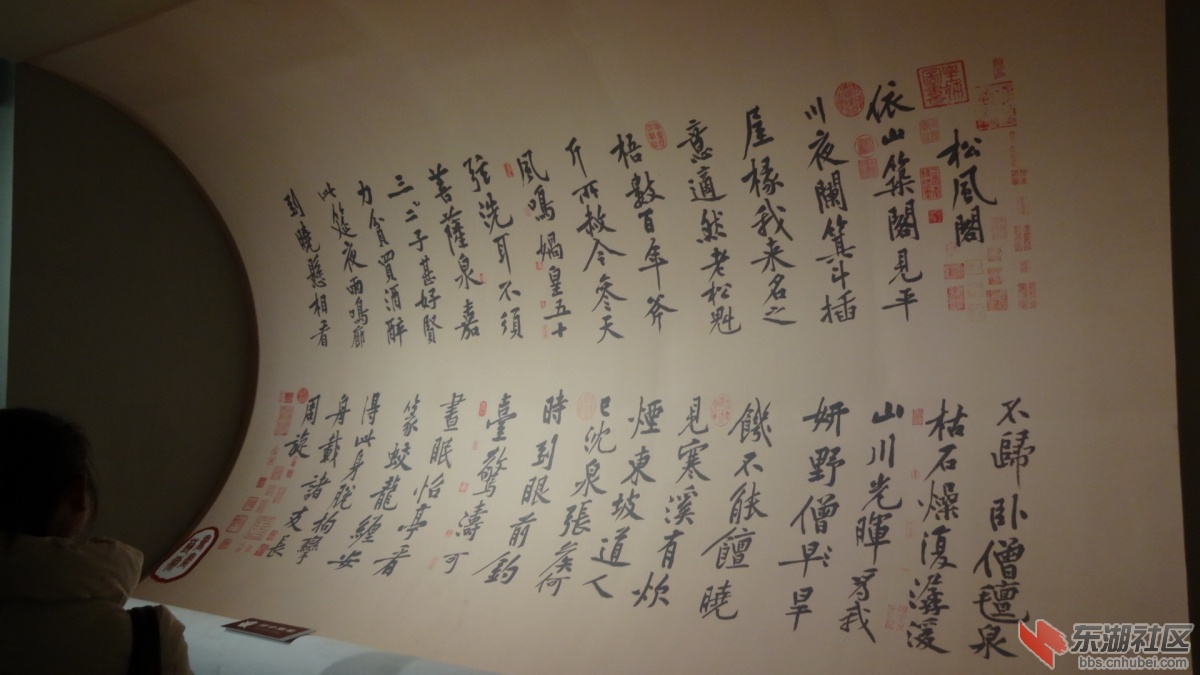 松風閣
依山築閣見平
川夜闌箕斗插
屋椽我来名之
意適然老松魁
梧數百年斧
斤所赦令參天
風鳴媧皇五十
弦洗耳不須
菩薩泉嘉
三二子甚好賢
力貧買酒醉
此筵夜雨鳴廊
到曉懸相看
不歸卧僧氊泉
枯石燥復潺湲
山川光暉為我
妍野僧早旱
饑不能饘曉
見寒溪有炊
煙東坡道人
已沈泉張侯何
時到眼前釣
臺驚濤可
晝眠怡亭看
篆蛟龍纏安
得此身脱拘攣
舟載諸友長
周旋
东湖社区
bbs.cnhubei.com